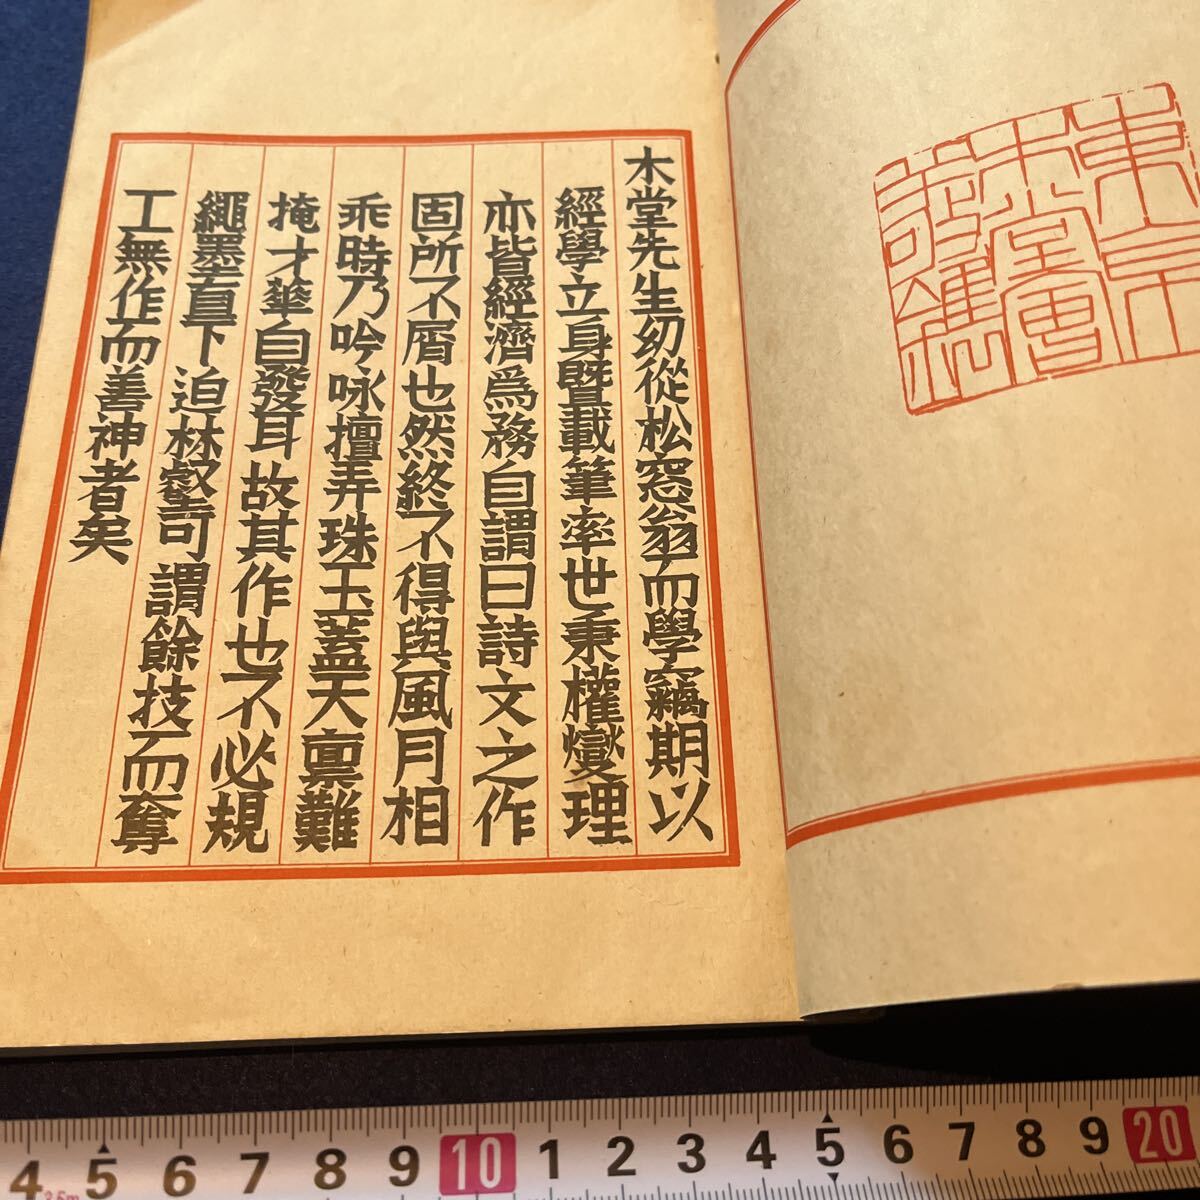 東京
木堂會
木堂先生幼從松窓翁而學竊期以
經學立身既載筆率世秉權燮理
亦皆經濟爲務自謂曰詩文之作
固所不屑也然終不得與風月相
乖時乃吟咏擅弄珠玉蓋天禀難
掩才華自發耳故其作也不必規
繩墨直下迫林壑可謂餘技而奪
工無作而善神者矣
4 5 6 7 8 9 10 1 2 3 4 5 6 7 8 9 20